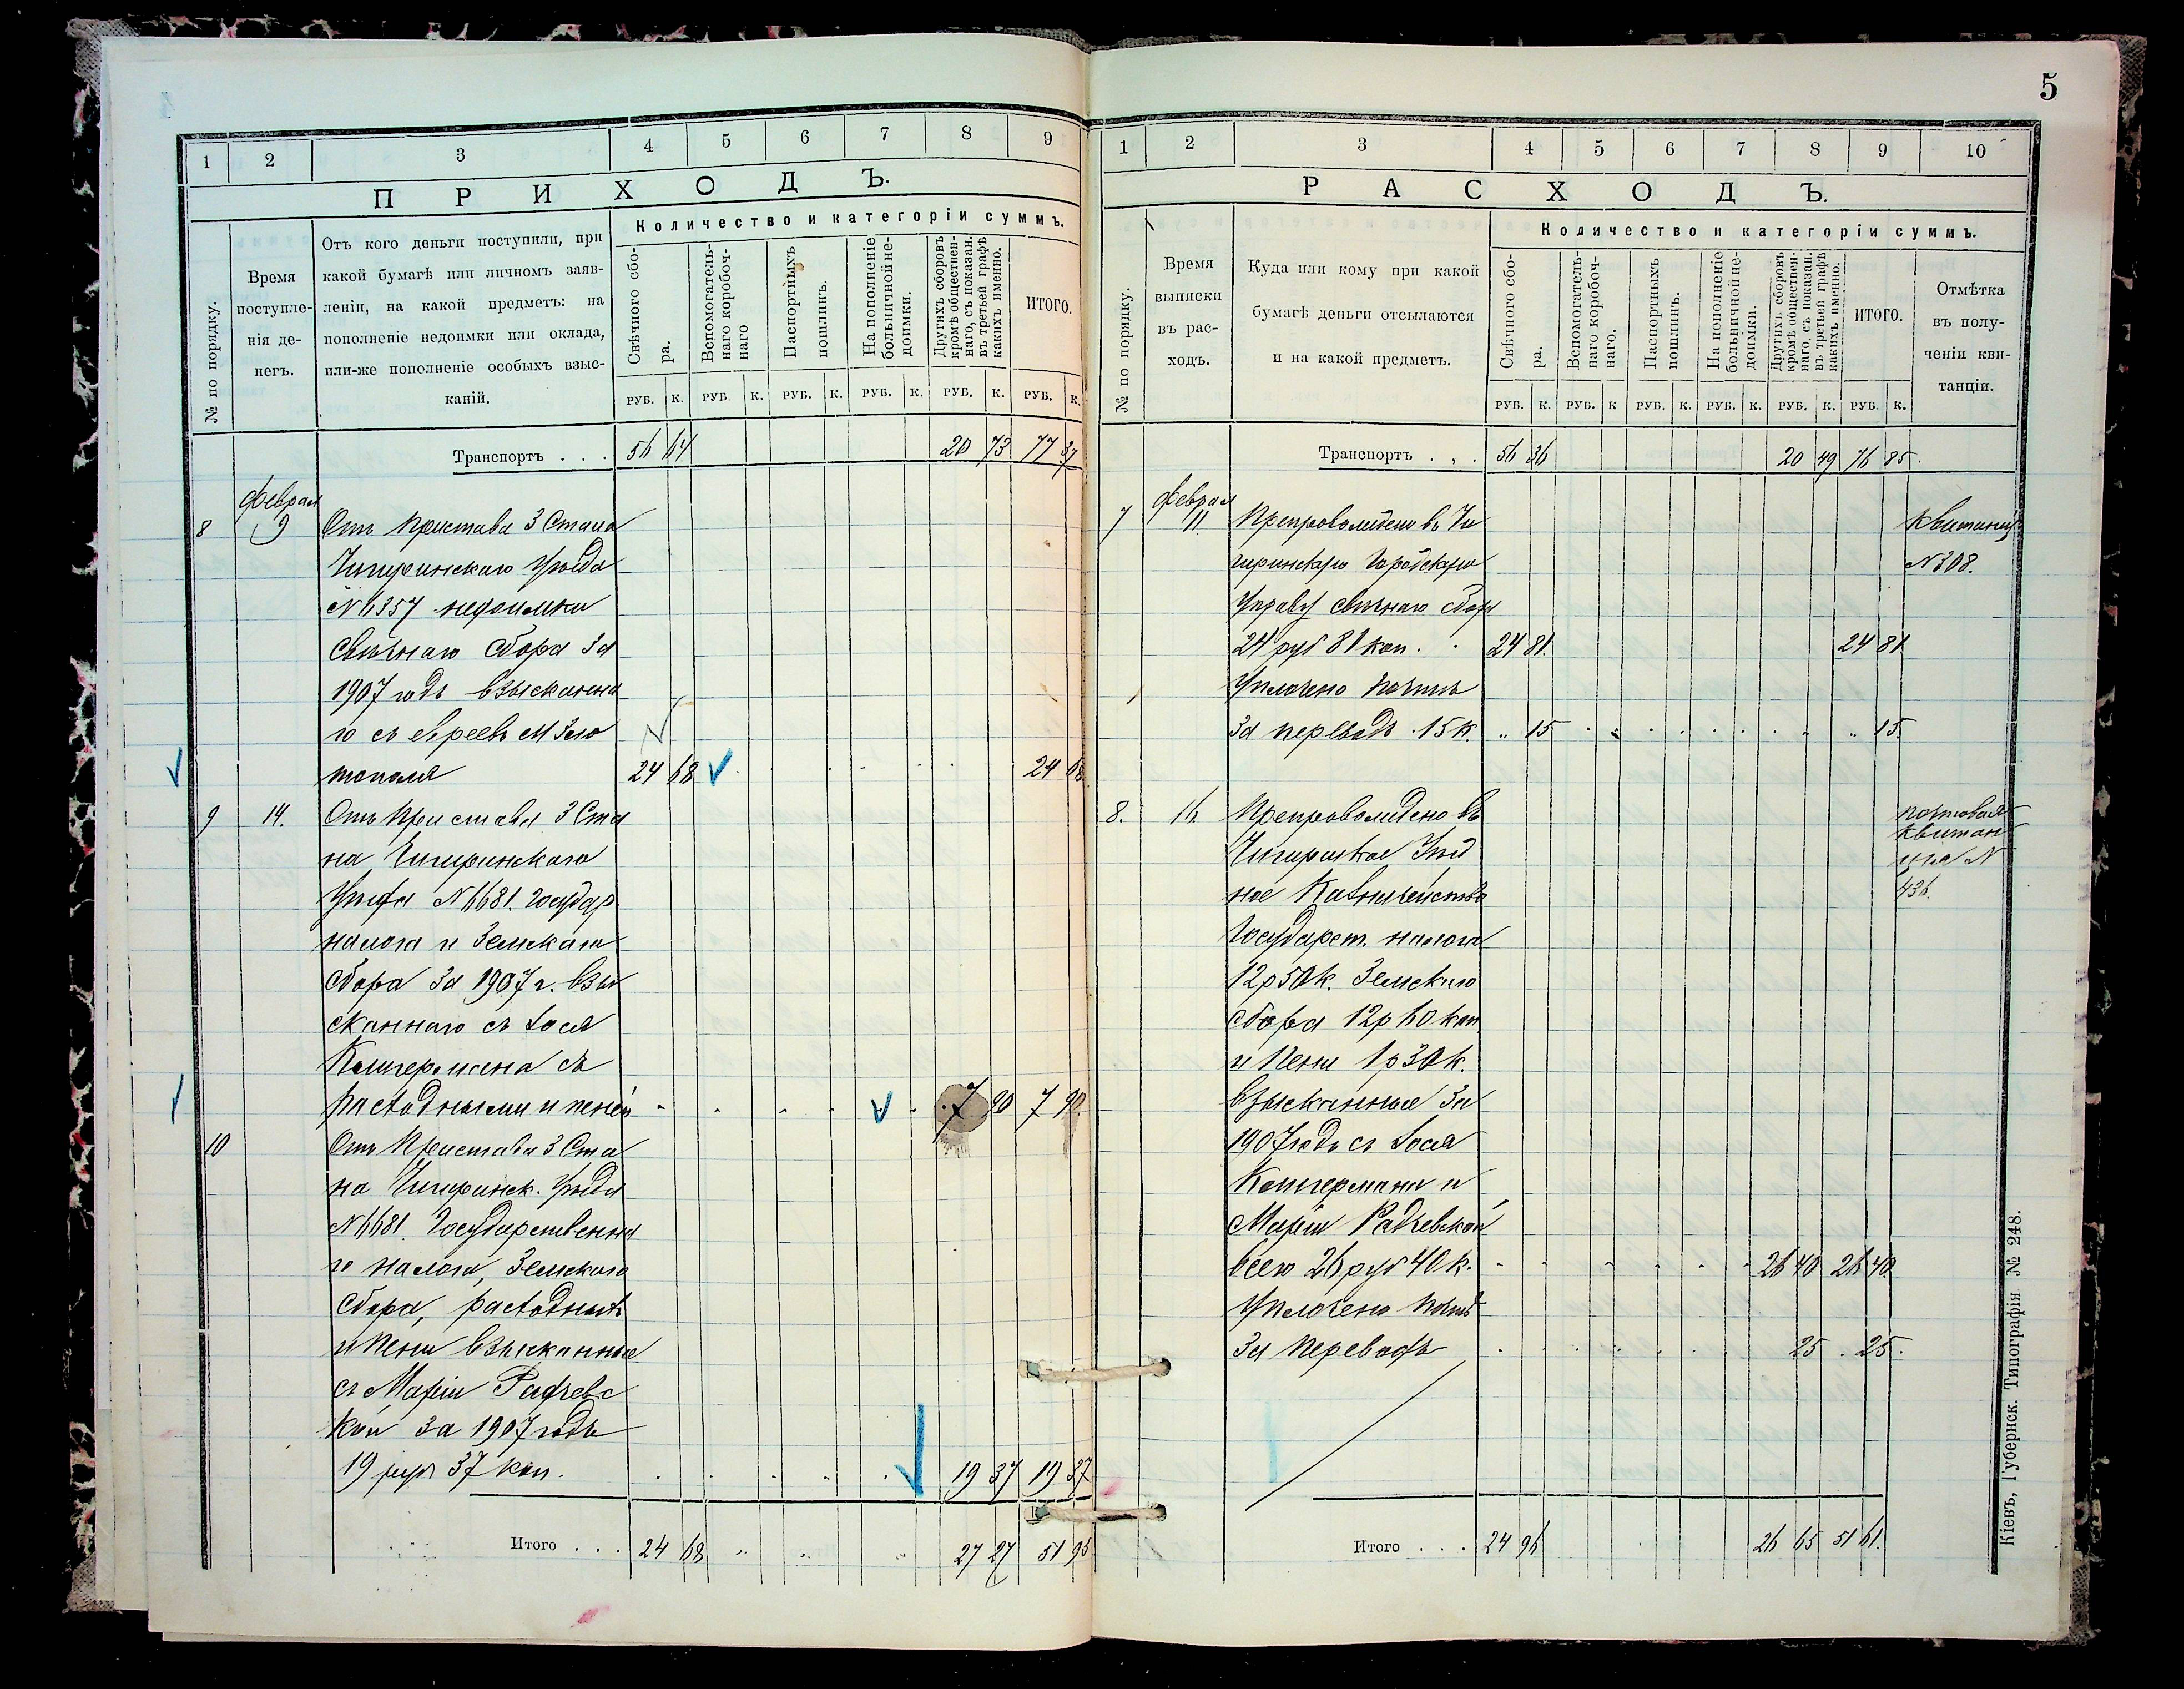 5
1 2 3 4 5 6 7 8 9
ПРИХОДЪ.
№ по порядку.
Время поступле-
нія де-
негъ.
Отъ кого деньги поступили, при
какой бумагѣ или личномъ заяв-
леніи, на какой предметъ: на
пополненіе недоимки или оклада,
или-же пополненіе особыхъ взыс-
каній.
Количество и категоріи суммъ.
Свѣчного сбо-
ра.
Вспомогатель-
наго коробоч-
наго
Паспортныхъ
пошлинъ.
На пополненіе
больничной не-
доимки.
Другихъ сборовъ
кромѣ обществен-
наго, съ показан.
въ третьей графѣ
какихъ именно.
ИТОГО.
РУБ. К. РУБ. К. РУБ. К. РУБ. К. РУБ. К. РУБ. К.
Транспортъ . . . 56 64 20 73 77 37
Феврал
8 9 Отъ Пристава 3 Стана
Чигиринскаго Уѣзда
N 6357 недоимки
Свѣчнаго Сбора За
1907 годъ взысканна
го съ евреевъ М Зла
тополя 24 68 24 68
9 14. Отъ Пристава 3 Ста
на Чигиринскаго
Уѣзда N 6681. Государ
налога и Земскаго
Сбора За 1907 г. взы
сканнаго съ Іося
Кельнермана съ
расходными и пеней 7 90 7 90
10 Отъ Пристава 3 Ста
на Чигиринск. Уѣзда
N 6681. Государственна
го налога, Земскаго
Сбора, расходныхъ
и пени взысканные
съ Маріи Радчевс
кой за 1907 годъ
19 руб 37 коп. 19 37 19 37
Итого . . . 24 68 27 27 51 95
1 2 3 4 5 6 7 8 9 10
РАСХОДЪ.
№ по порядку.
Время
выписки
въ рас-
ходъ.
Куда или кому при какой
бумагѣ деньги отсылаются
и на какой предметъ.
Количество и категоріи суммъ.
Свѣчного сбо-
ра.
Вспомогатель-
наго коробоч-
наго.
Паспортныхъ
пошлинъ.
На пополненіе
больничной не-
доимки.
Другихъ сборовъ
кромѣ обществен-
наго, съ показан.
въ третьей графѣ
какихъ именно.
ИТОГО.
Отмѣтка
въ полу-
ченіи кви-
танціи.
РУБ. К. РУБ. К РУБ. К. РУБ. К. РУБ. К. РУБ. К.
Транспортъ . . . 56 36 20 49 76 85.
Феврал
7 11 Препровождено въ Чи
гиринскую Городскую
Управу свѣчнаго сбора
24 руб 81 коп. 24 81. 24 81
Уплочено почтѣ
За переводъ 15 к. " 15 " 15.
Квитанція
N 308.
8. 16. Препровождено въ
Чигиринское Уѣзд
ное Казначейство
Государст. налога
12 р 50 к. Земскаго
сбора 12 р 60 коп
и Пени 1 р 30 к.
взысканные За
1907 годъ съ Іося
Кельнермана и
Маріи Радчевской
всего 26 руб 40 к. 26 40 26 40
Уплочено почтѣ
За переводъ 25 . 25.
почтовая
квитан
ція N
436.
Итого . . . 24 96 26 65 51 61.
Кіевъ, Губернск. Типографія № 248.